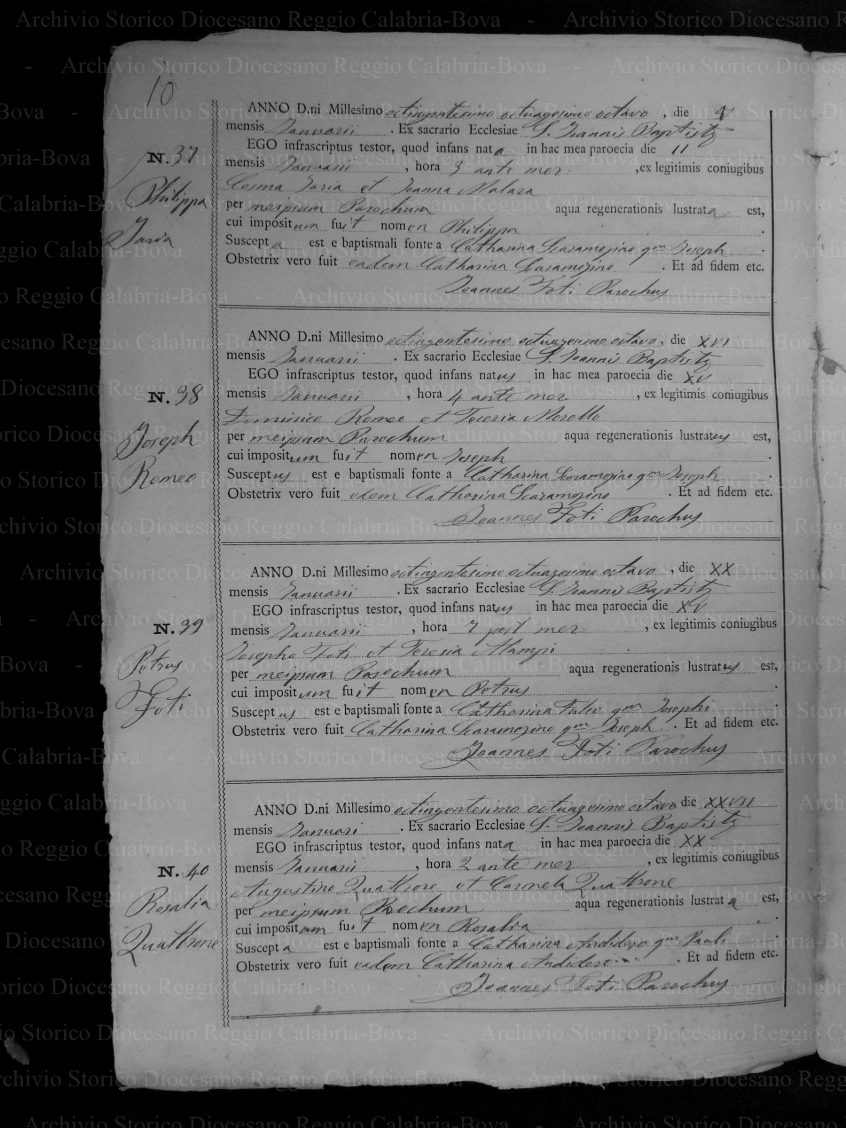 10
ANNO D.ni Millesimo octingentesimo octuagesimo octavo, die V
mensis Januarii . Ex sacrario Ecclesiae S. Joannis Baptistę
EGO infrascriptus testor, quod infans nata in hac mea paroecia die II
N. 37
mensis Januarii , hora 3 ante mer ,ex legitimis coniugibus
Cosma Iaria et Joanna Malara
Philippa
per meipsum Parochum aqua regenerationis lustrata est,
cui impositum fuit nomen Philippa .
Iaria
Suscepta est e baptismali fonte a Catharina Scaramozino qm Joseph .
Obstetrix vero fuit eadem Catharina Scaramozino . Et ad fidem etc.
Joannes Foti Parochus
ANNO D.ni Millesimo octingentesimo octuagesimo octavo, die XVI
mensis Januarii . Ex sacrario Ecclesiae S. Joannis Baptistę
EGO infrascriptus testor, quod infans natus in hac mea paroecia die XV
N. 38
mensis Januarii , hora 4 ante mer , ex legitimis coniugibus
Dominico Romeo et Teresia Morello
Joseph
per meipsum Parochum aqua regenerationis lustratus est,
cui impositum fuit nomen Joseph .
Romeo
Susceptus est e baptismali fonte a Catharina Scaramozino qm Joseph .
Obstetrix vero fuit edem Catharina Scaramozino . Et ad fidem etc.
Joannes Foti Parochus
ANNO D.ni Millesimo octingentesimo octuagesimo octavo , die XX
mensis Januarii . Ex sacrario Ecclesiae S. Joannis Baptistę
EGO infrascriptus testor, quod infans natus in hac mea paroecia die XV
N. 39
mensis Januarii , hora 7 post mer , ex legitimis coniugibus
Josepho Foti et Teresia
Petrus
per meipsum Parochum aqua regenerationis lustratus est,
cui impositum fuit nomen Petrus .
Foti
Susceptus est e baptismali fonte a Catharina qm Josephi
Obstetrix vero fuit Catharina Scaramozino qm Joseph . Et ad fidem etc.
Joannes Foti Parochus
ANNO D.ni Millesimo octingentesimo octuagesimo octavo die XXVII
mensis Januari . Ex sacrario Ecclesiae S. Joannis Baptistę
EGO infrascriptus testor, quod infans nata in hac mea paroecia die XX
N. 40
mensis Januarii , hora 2 ante mer , ex legitimis coniugibus
Augustino Quattrone et Carmela Quattrone
Rosalia
per meipsum Parochum aqua regenerationis lustrata est,
cui impositum fuit nomen Rosalia .
Quattrone
Suscepta est e baptismali fonte a Catharina Andidero qm Pauli .
Obstetrix vero fuit eadem Catharina Andidero . Et ad fidem etc.
Joannes Foti Parochus
Archivio Storico Diocesano Reggio Calabria-Bova